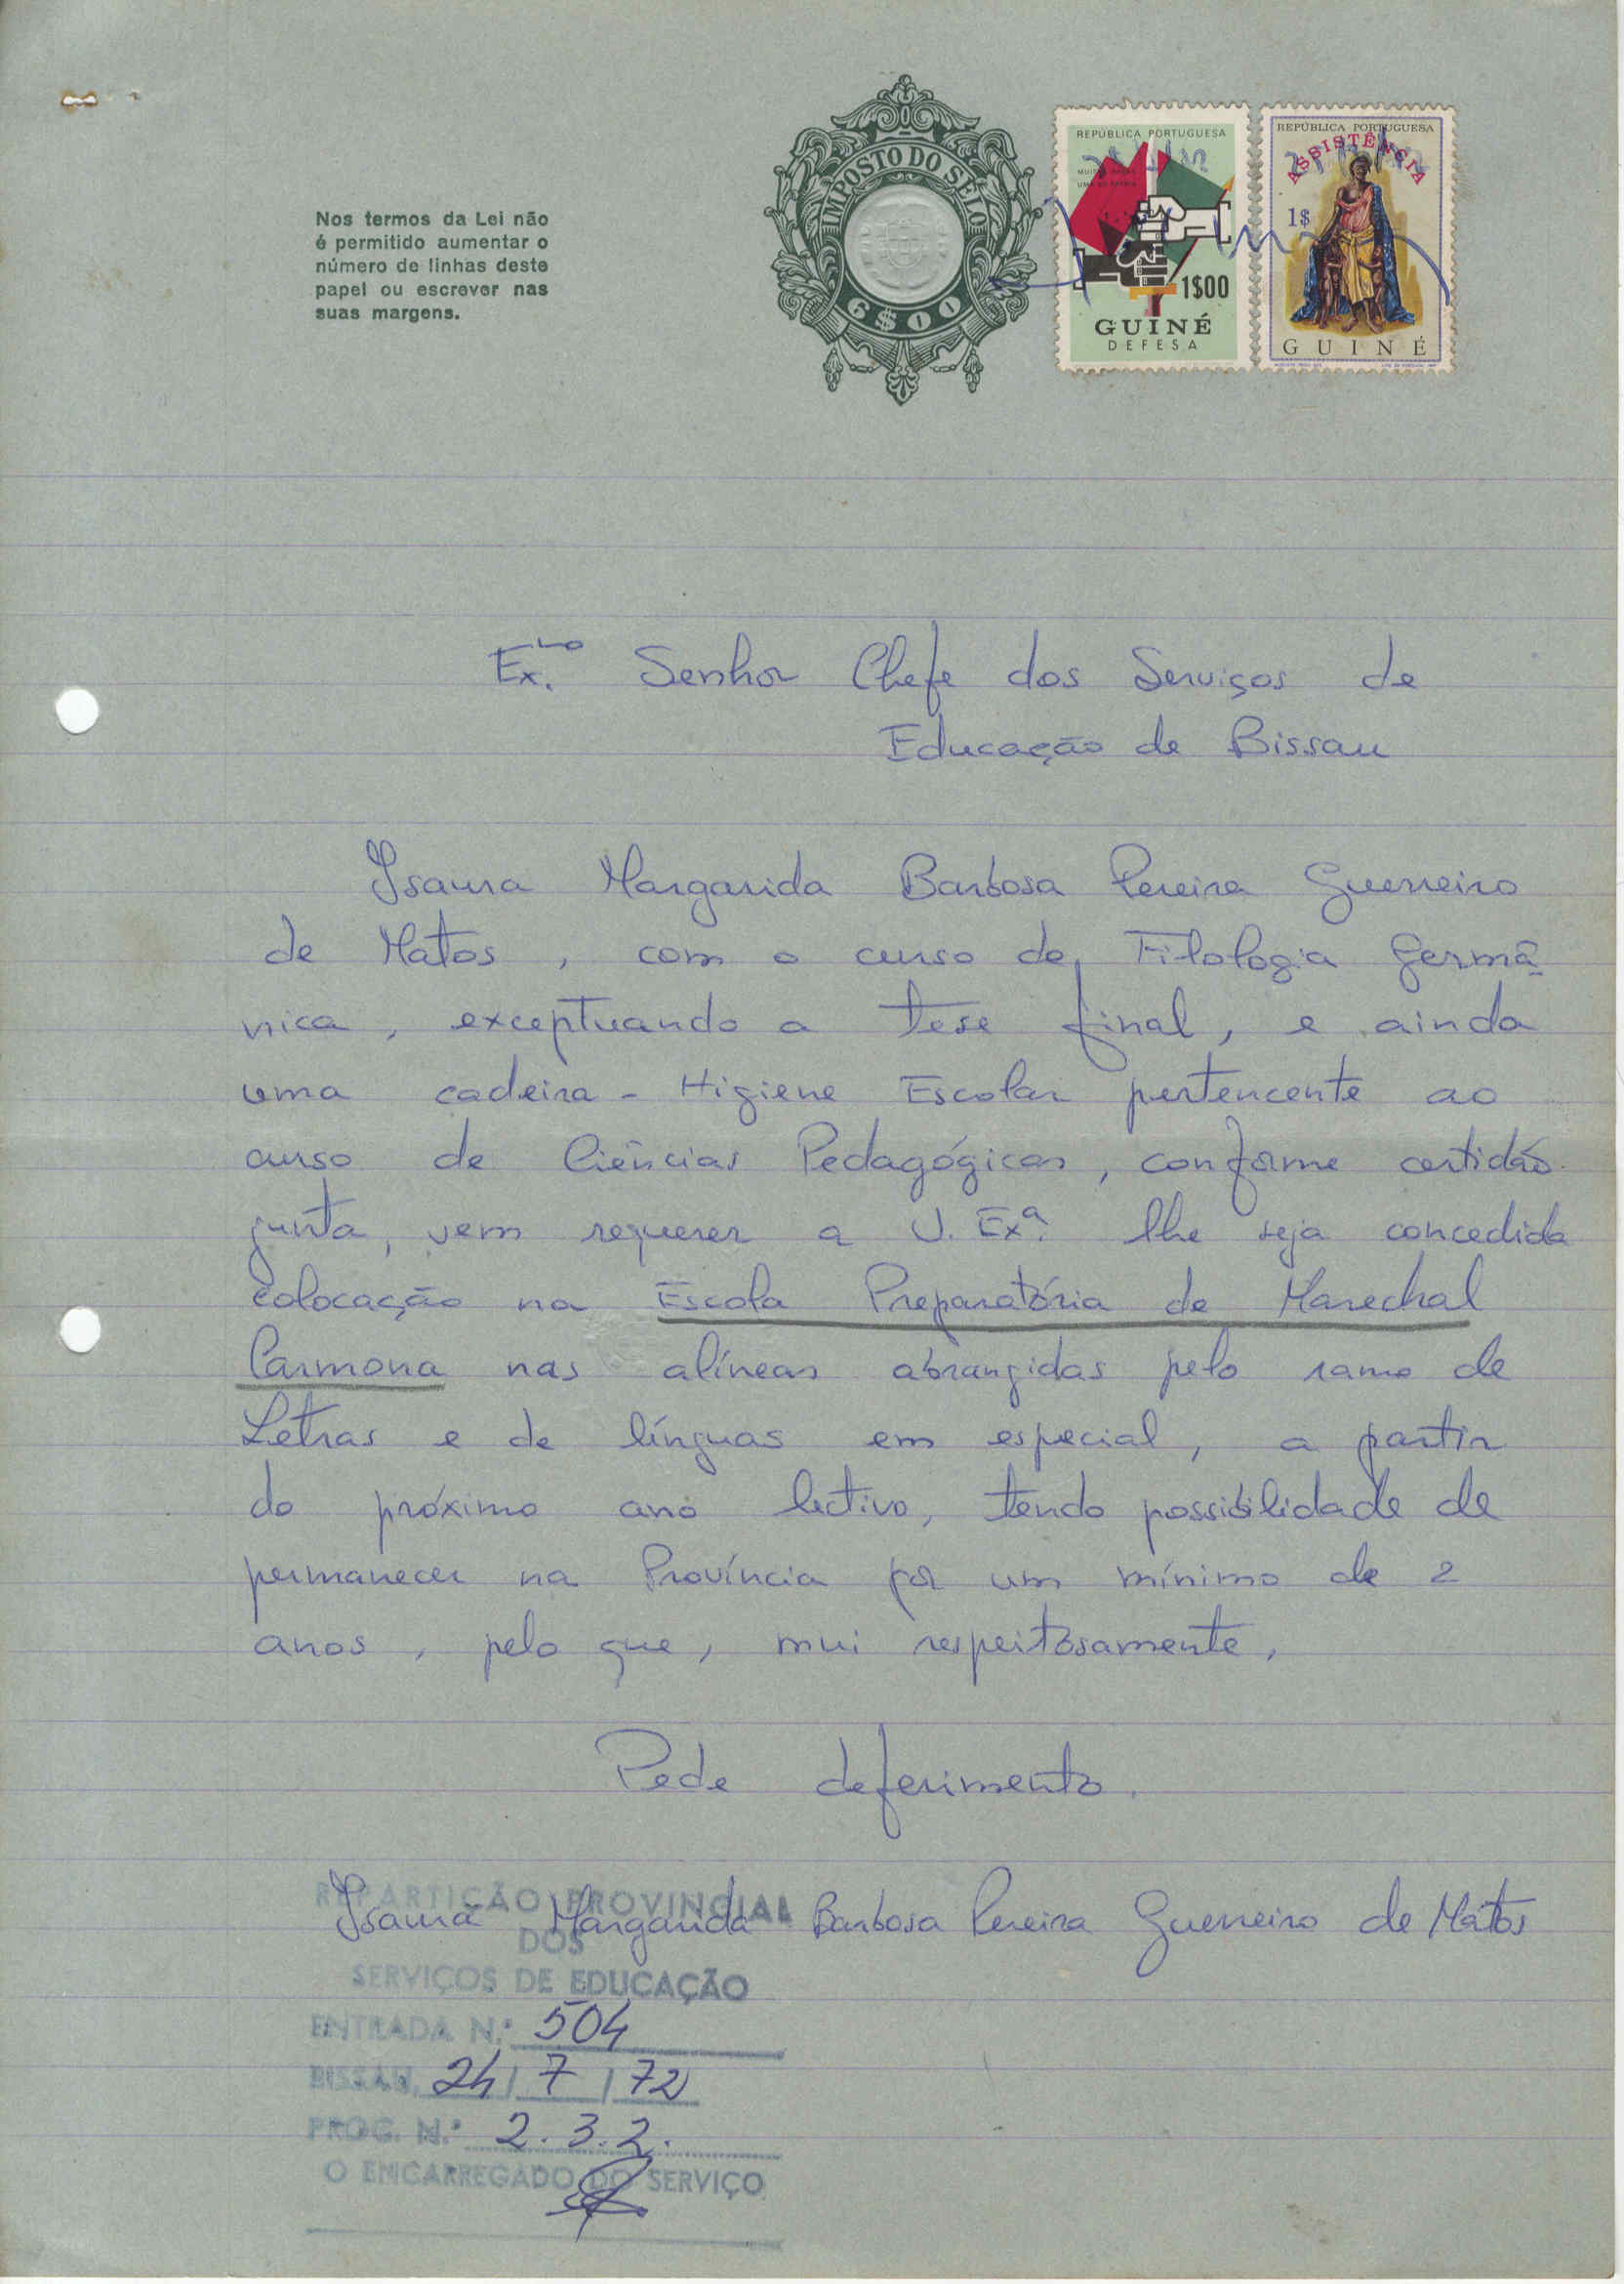 Nos termos da Lei não
é permitido aumentar o
número de linhas deste
papel ou escrever nas
suas margens.
IMPOSTO DO SELO
6$00
REPÚBLICA PORTUGUESA
1$00
GUINÉ
DEFESA
REPÚBLICA PORTUGUESA
ASSISTÊNCIA
1$
GUINÉ
Ex.mo Senhor Chefe dos Serviços de
Educação de Bissau
Isaura Margarida Barbosa Pereira Guerreiro
de Matos, com o curso de Filologia Germâ-
nica, exceptuando a tese final, e ainda
uma cadeira - Higiene Escolar pertencente ao
curso de Ciências Pedagógicas, conforme certidão
junta, vem requerer a V. Exª. lhe seja concedida
colocação na Escola Preparatória de Marechal
Carmona nas alíneas abrangidas pelo ramo de
Letras e de línguas em especial, a partir
do próximo ano lectivo, tendo possibilidade de
permanecer na Província por um mínimo de 2
anos, pelo que, mui respeitosamente,
Pede deferimento.
Isaura Margarida Barbosa Pereira Guerreiro de Matos
REPARTIÇÃO PROVINCIAL
DOS
SERVIÇOS DE EDUCAÇÃO
ENTRADA N.º 504
BISSAU, 24/7/72
PROG. N.º 2.3.2.
O ENCARREGADO DO SERVIÇO